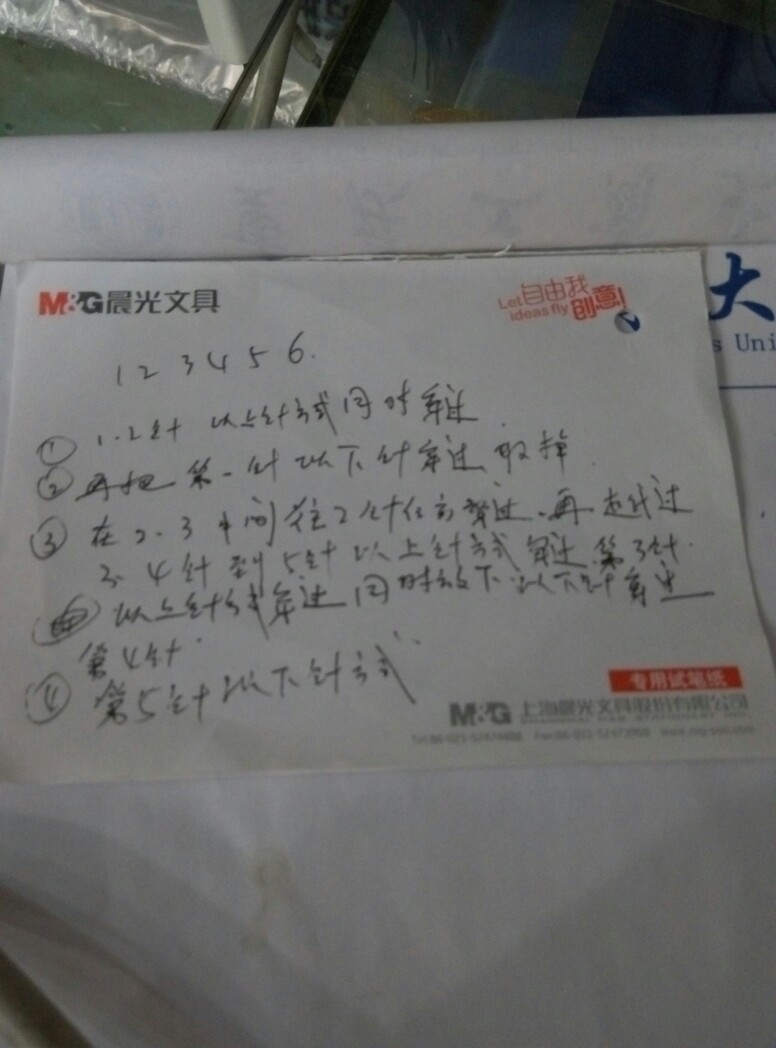 M&G晨光文具
Let 自由我
ideas fly 创意!
大
s Uni
1 2 3 4 5 6.
① 1.2针 以上针方式同时穿过
② 再把第一针以下针穿过 取掉.
③ 在2.3中间往2针位方 穿过.再 过
3.4针到5针以上针方式穿过第3针.
以上针方式穿过同时放下以下针穿过
第4针.
④ 第5针以下针方式
专用试笔纸
M&G 上海晨光文具股份有限公司